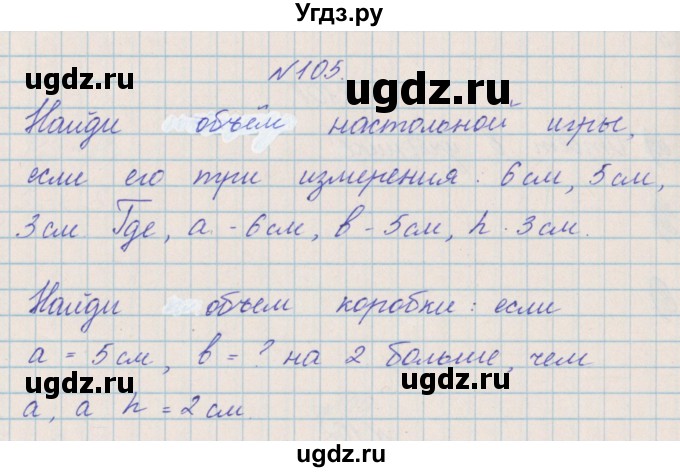 Угдз.ру
ugdz.ru
№105. ugdz.ru
Найди объём настольной игры,
если его три измерения: 6см, 5см,
3см. Где, а - 6см, в - 5см, h - 3см.
ugdz.ru ugdz.ru
Найди объем коробки: если
а = 5см, в = ? на 2 больше, чем
ugdz.ru ugdz.ru
а, а h = 2см.
ugdz.ru